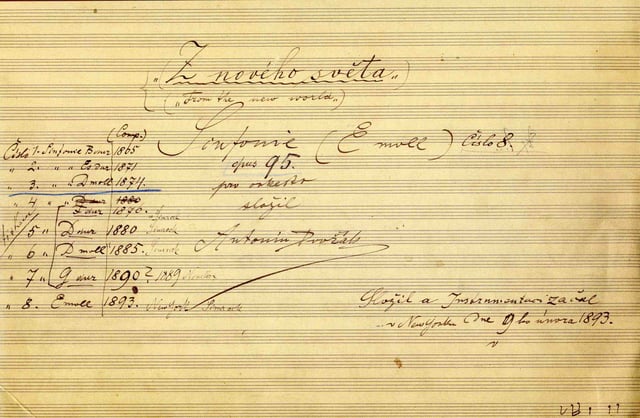 „Z nového světa"
(„From the new world")
Sinfonie (E moll) Číslo 8.
opus 95.
pro orkestr
složil
Antonín Dvořák
(Comp.)
Číslo 1. Sinfonie B dur 1865
" 2. " " Es dur 1871
" 3. " " D moll 1874.
" 4 " " D dur 1880
F dur 1870.
" 5 " D dur 1880 Simrock
" 6 " D moll 1885. Simrock
" 7 " G dur 1890? 1889 Novello
" 8. E moll 1893. New York Simrock
Složil a Instrumentaci začal
v New Yorku Dne 9ho února 1893.